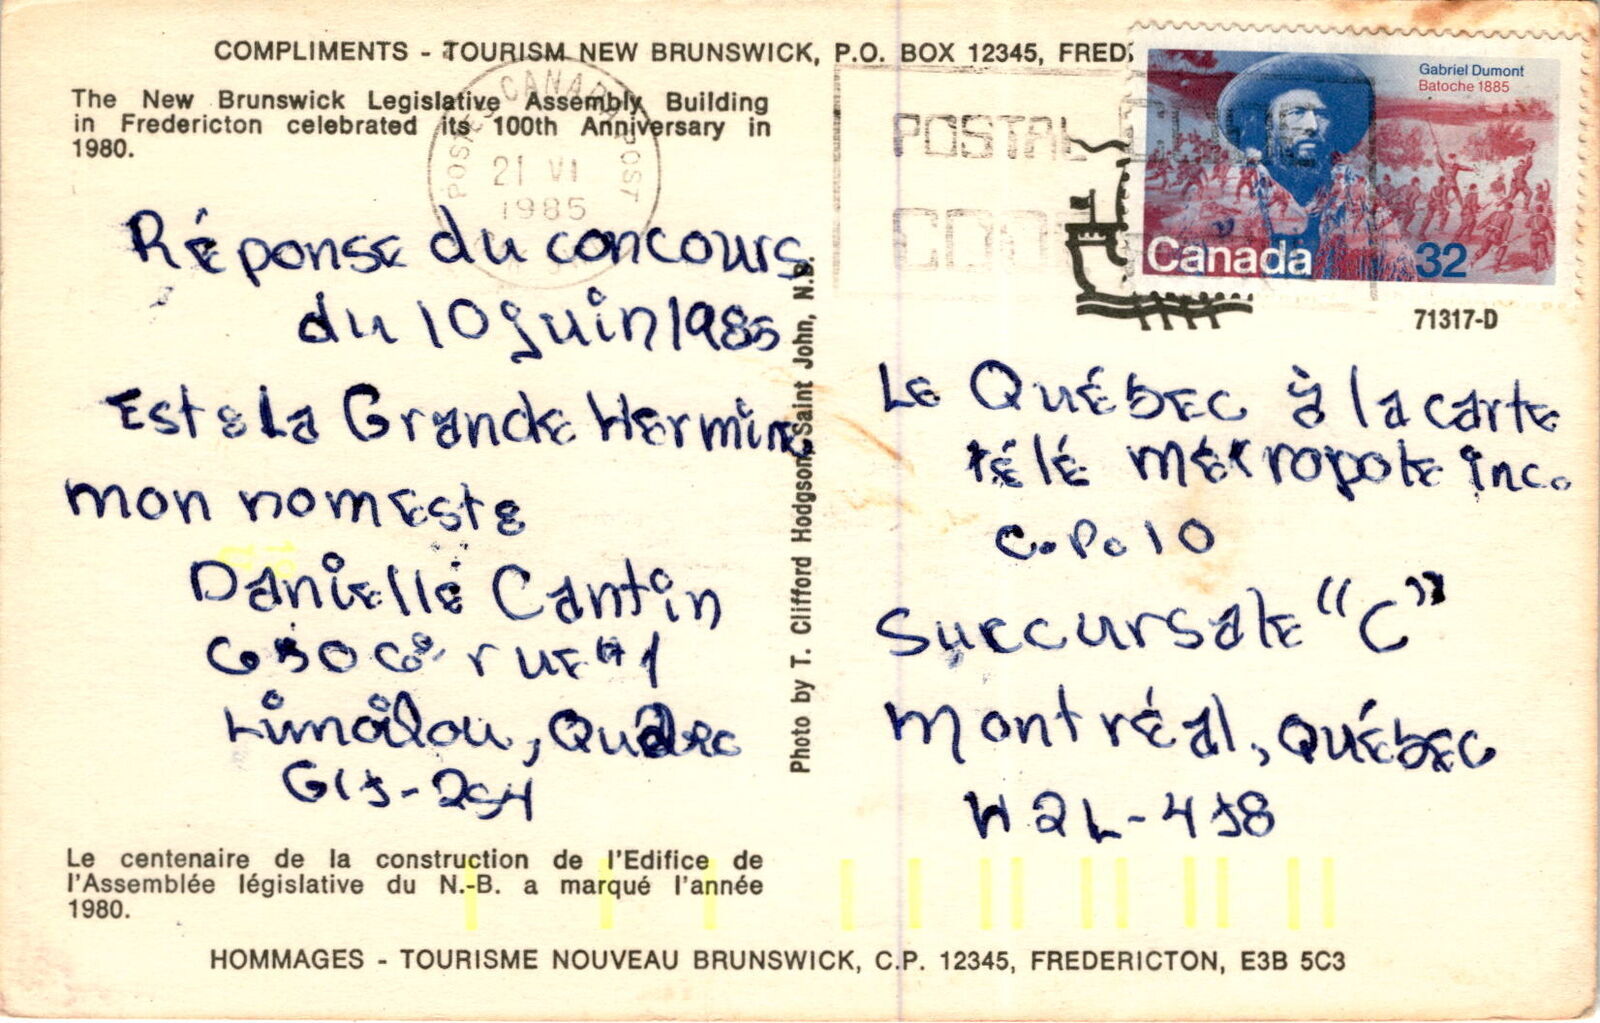 COMPLIMENTS - TOURISM NEW BRUNSWICK, P.O. BOX 12345, FRED
The New Brunswick Legislative Assembly Building
in Fredericton celebrated its 100th Anniversary in
1980.
CANADA POST
POSTES
21 VI
1985
POSTAL CODE
CODE
Gabriel Dumont
Batoche 1885
Canada 32
71317-D
Réponse du concours
du 10 juin 1985
Est e la Grande Hermine
mon nom este
Danielle Cantin
650 6e rue #1
Limoilou, Québec
G1J-2S4
Photo by T. Clifford Hodgson, Saint John, N.B.
Le Québec à la carte
télé métropole inc.
C.P. 10
Succursale "C"
Montréal, Québec
H2L-4J8
Le centenaire de la construction de l'Edifice de
l'Assemblée législative du N.-B. a marqué l'année
1980.
HOMMAGES - TOURISME NOUVEAU BRUNSWICK, C.P. 12345, FREDERICTON, E3B 5C3